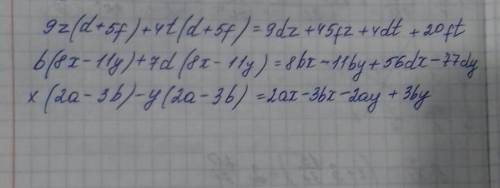 9z(d+5f)+4t(d+5f)=9dz+45fz+4dt+20ft
b(8x-11y)+7d(8x-11y)=8bx-11by+56dx-77dy
x(2a-3b)-y(2a-3b)=2ax-3bx-2ay+3by